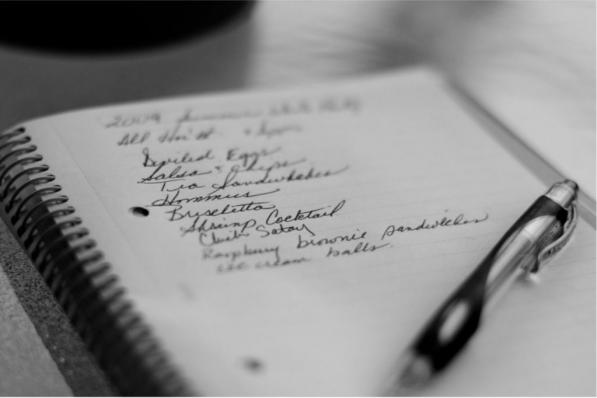 2009 Summer White Party
All Hor'
Deviled Eggs
Salsa & Chips
Tea Sandwiches
Hommus
Brushetta
Shrimp Cocktail
Satay
Raspberry brownie sandwiches
ice cream balls.